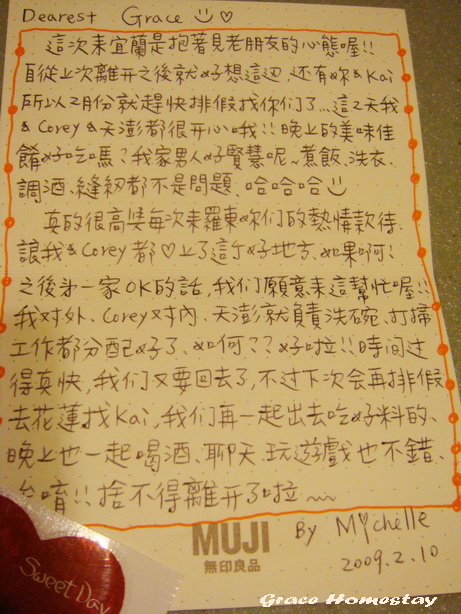 Dearest Grace
這次來宜蘭是抱著見老朋友的心態喔!!
自從上次離開之後就好想這边、还有妳&Kai
所以2月份就趕快排假找你们了...這2天我
&Corey&天澎都很开心哦!! 晚上的美味佳
餚好吃嗎? 我家男人好賢慧呢~煮飯、洗衣、
調酒、縫紉都不是問題、哈哈哈
真的很高兴每次來羅東妳们的熱情款待、
讓我&Corey都♡上了這个好地方、如果啊!
之後第一家OK的話,我们願意來這幫忙喔!!
我对外、Corey对內、天澎就負責洗碗、打掃
工作都分配好了、如何?? 好啦!! 時间过
得真快,我们又要回去了,不过下次会再排假
去花蓮找Kai,我们再一起出去吃好料的、
晚上也一起喝酒、聊天、玩遊戲也不錯、
唷!! 捨不得離开了啦~~
MUJI
無印良品
By Michelle
2009.2.10
Sweet Day
Grace Homestay